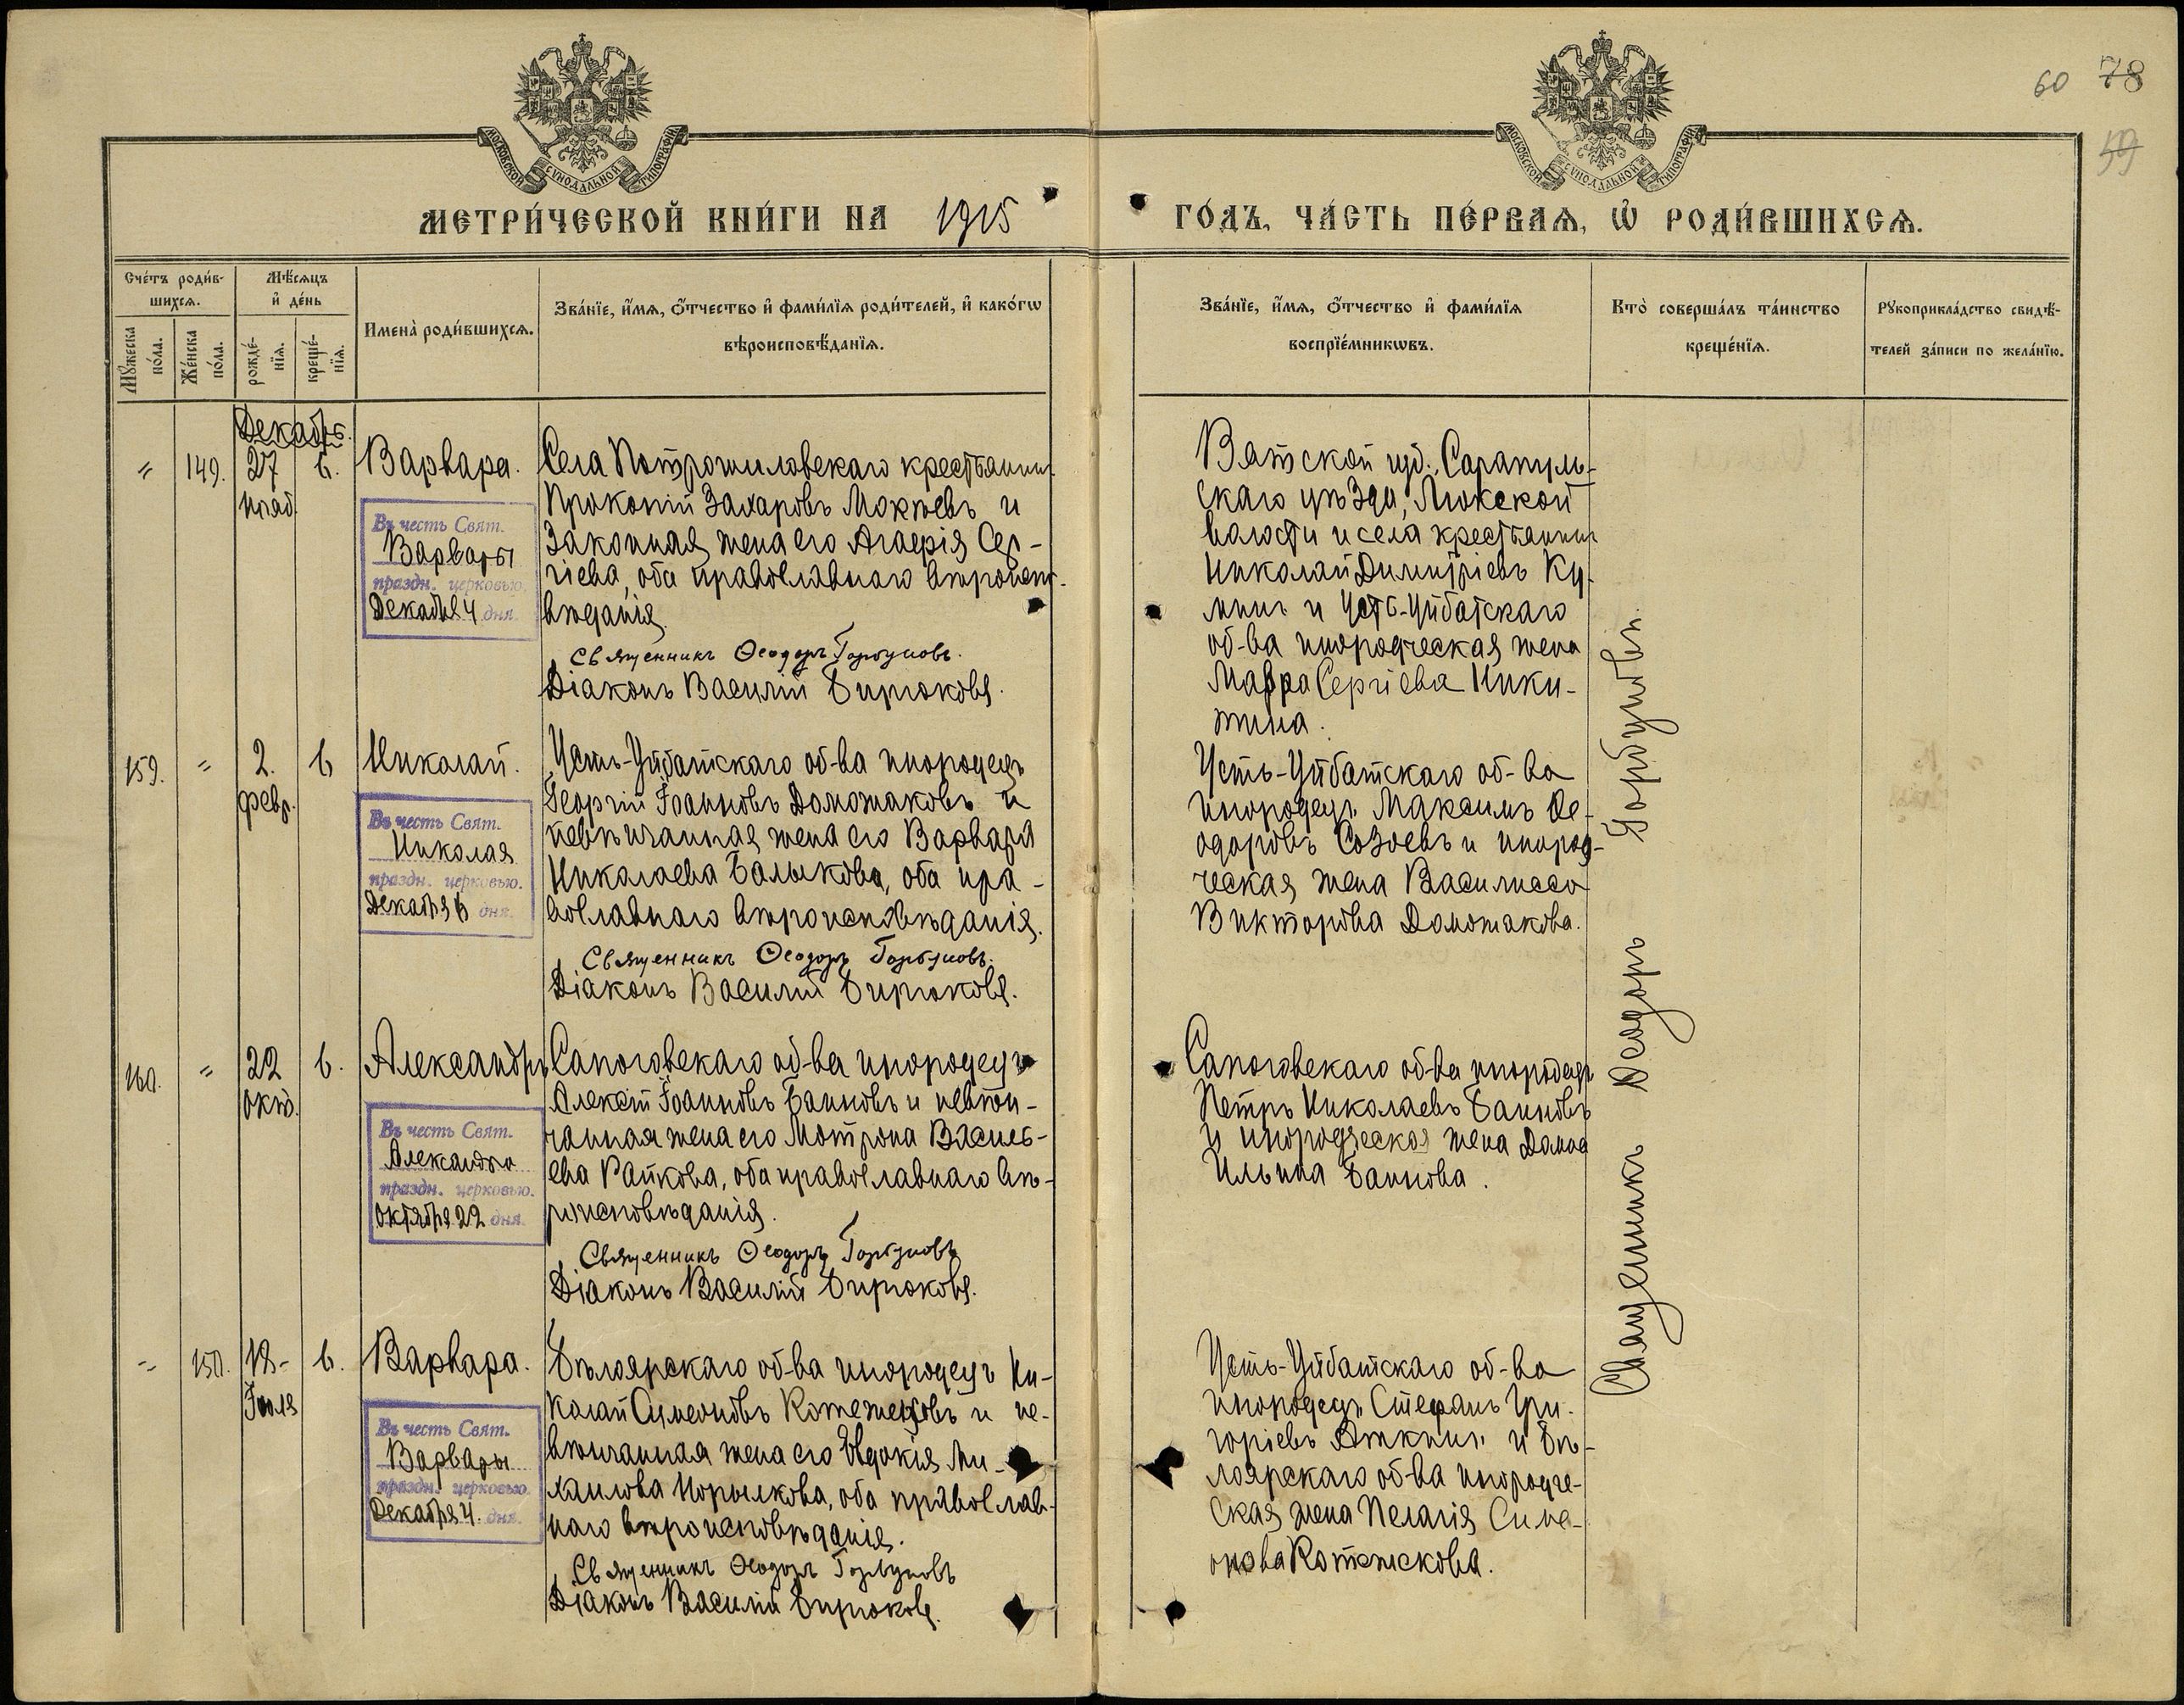 60 78
59
МОСКОВСКОЙ СУНОДАЛЬНОЙ ТИПОГРАФІИ
МОСКОВСКОЙ СУНОДАЛЬНОЙ ТИПОГРАФІИ
МЕТРИ́ЧЕСКОЙ КНИ́ГИ НА 1915
ГО́ДЪ, ЧА́СТЬ ПЕ́РВАѦ, Ѽ РОДИ́ВШИХСѦ.
Сче́тъ роди́в-
шихсѧ.
Мꙋ́жеска по́ла.
Же́нска по́ла.
Мѣ́сѧцъ
и҆ де́нь
рожде́-
нїѧ.
креще́-
нїѧ.
Имена̀ роди́вшихсѧ.
Зва́нїе, и҆́мѧ, ѻ҆́тчество и҆ фами́лїѧ роди́телей, и҆ како́гѡ
вѣроисповѣ́данїѧ.
Зва́нїе, и҆́мѧ, ѻ҆́тчество и҆ фами́лїѧ
воспрїе́мникѡвъ.
Кто̀ соверша́лъ та́инство
креще́нїѧ.
Рꙋкоприкла́дство свидѣ́-
телей за́писи по жела́нїю.
Декабрь.
" 149. 27 6. Варвара.
нояб.
Въ честь Свят.
Варвары
праздн. церковью
Декабря 4 дня.
Села крестьянинъ
Прокопій Захаровъ Мокѣевъ и
законная жена его Агаѳія Сер-
гіева, оба православнаго вѣроиспо-
вѣданія.
Священникъ Ѳеодоръ Горбуновъ.
Діаконъ Василій Бирюковъ.
Вятской губ., Сарапуль-
скаго уѣзда, Люкской
волости и села крестьянинъ
Николай Димитріевъ Ку-
минъ и Усть-Уйбатскаго
об-ва инородческая жена
Мавра Сергіева Ники-
тина.
159. " 2. 6 Николай.
февр.
Въ честь Свят.
Николая
праздн. церковью.
Декабря 6 дня.
Усть-Уйбатскаго об-ва инородецъ
Георгій Іоанновъ Доможаковъ и
невѣнчанная жена его Варвара
Николаева Балыкова, оба пра-
вославнаго вѣроисповѣданія.
Священникъ Ѳеодоръ Горбуновъ.
Діаконъ Василій Бирюковъ.
Усть-Уйбатскаго об-ва
инородецъ Максимъ Ѳе-
одоровъ Созоевъ и инород-
ческая жена Василисса
Викторова Доможакова.
160. " 22 6. Александръ
окт.
Въ честь Свят.
Александра
праздн. церковью.
Октября 22 дня.
Сапоговскаго об-ва инородецъ
Алексѣй Іоанновъ Баиновъ и невѣн-
чанная жена его Мотрона Василь-
ева Райкова, оба православнаго вѣ-
роисповѣданія.
Священникъ Ѳеодоръ Горбуновъ
Діаконъ Василій Бирюковъ.
Сапоговскаго об-ва инородецъ
Петръ Николаевъ Баиновъ
и инородческая жена
Ильина Баинова.
" 150. 18- 6. Варвара.
Іюля
Въ честь Свят.
Варвары
праздн. церковью
Декабря 4. дня.
Бѣлоярскаго об-ва инородецъ Ни-
колай Сумеоновъ Котежековъ и не-
вѣнчанная жена его Евдокія Ми-
хаилова Норылкова, оба православ-
наго вѣроисповѣданія.
Священникъ Ѳеодоръ Горбуновъ
Діаконъ Василій Бирюковъ.
Усть-Уйбатскаго об-ва
инородецъ Стефанъ Гри-
горіевъ Аткнинъ и Бѣ-
лоярскаго об-ва инородче-
ская жена Пелагія Симе-
онова Котежекова.
Священникъ Ѳеодоръ Горбуновъ.